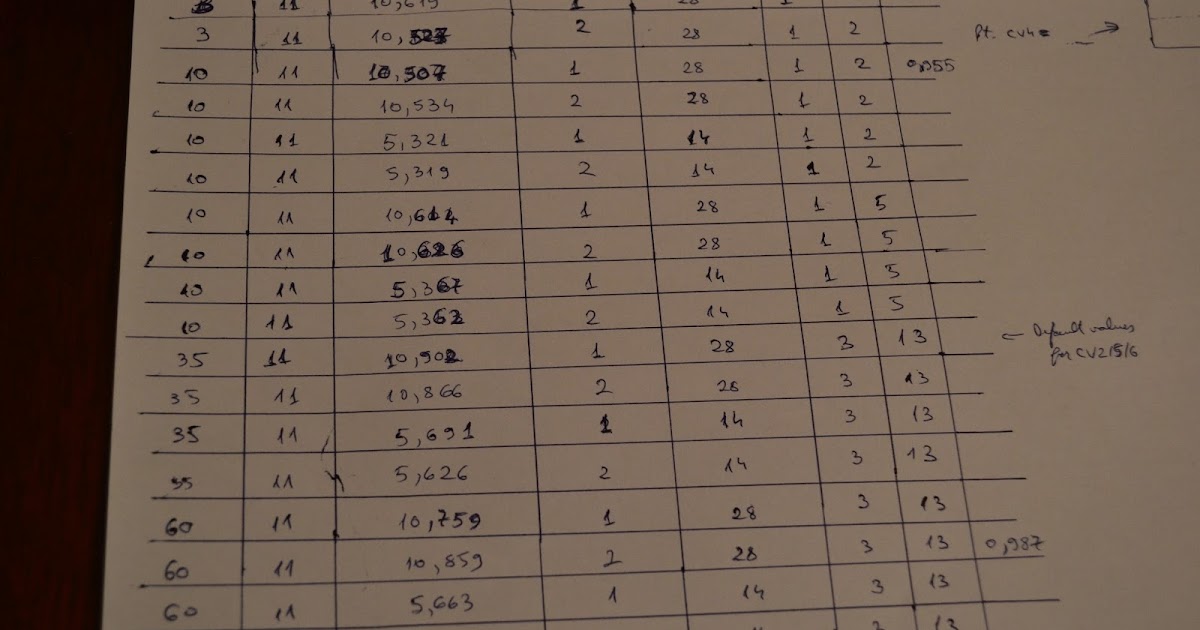 11 10,619 1 28 1
3 11 10,523 2 28 1 2 pt. CV4=
10 11 10,507 1 28 1 2
10 11 10,534 2 28 1 2
10 11 5,321 1 14 1 2
10 11 5,319 2 14 1 2
10 11 10,614 1 28 1 5
10 11 10,626 2 28 1 5
10 11 5,367 1 14 1 5
10 11 5,362 2 14 1 5
35 11 10,902 1 28 3 13 ← Default values
for CV2/5/6
35 11 10,866 2 28 3 13
35 11 5,691 1 14 3 13
35 11 5,626 2 14 3 13
60 11 10,759 1 28 3 13
60 11 10,859 2 28 3 13 0,987
60 11 5,663 1 14 3 13
13